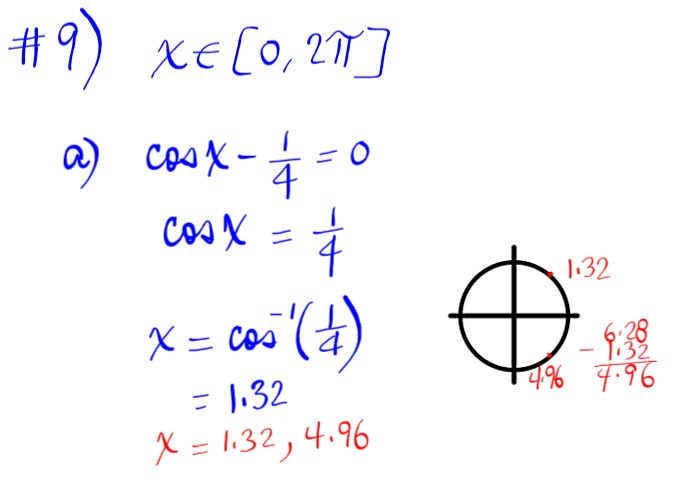 #9) x∈[0, 2π]
a) cos x - 1/4 = 0
cos x = 1/4
x = cos⁻¹(1/4)
= 1.32
x = 1.32, 4.96
1.32
4.96
6.28
- 1.32
4.96